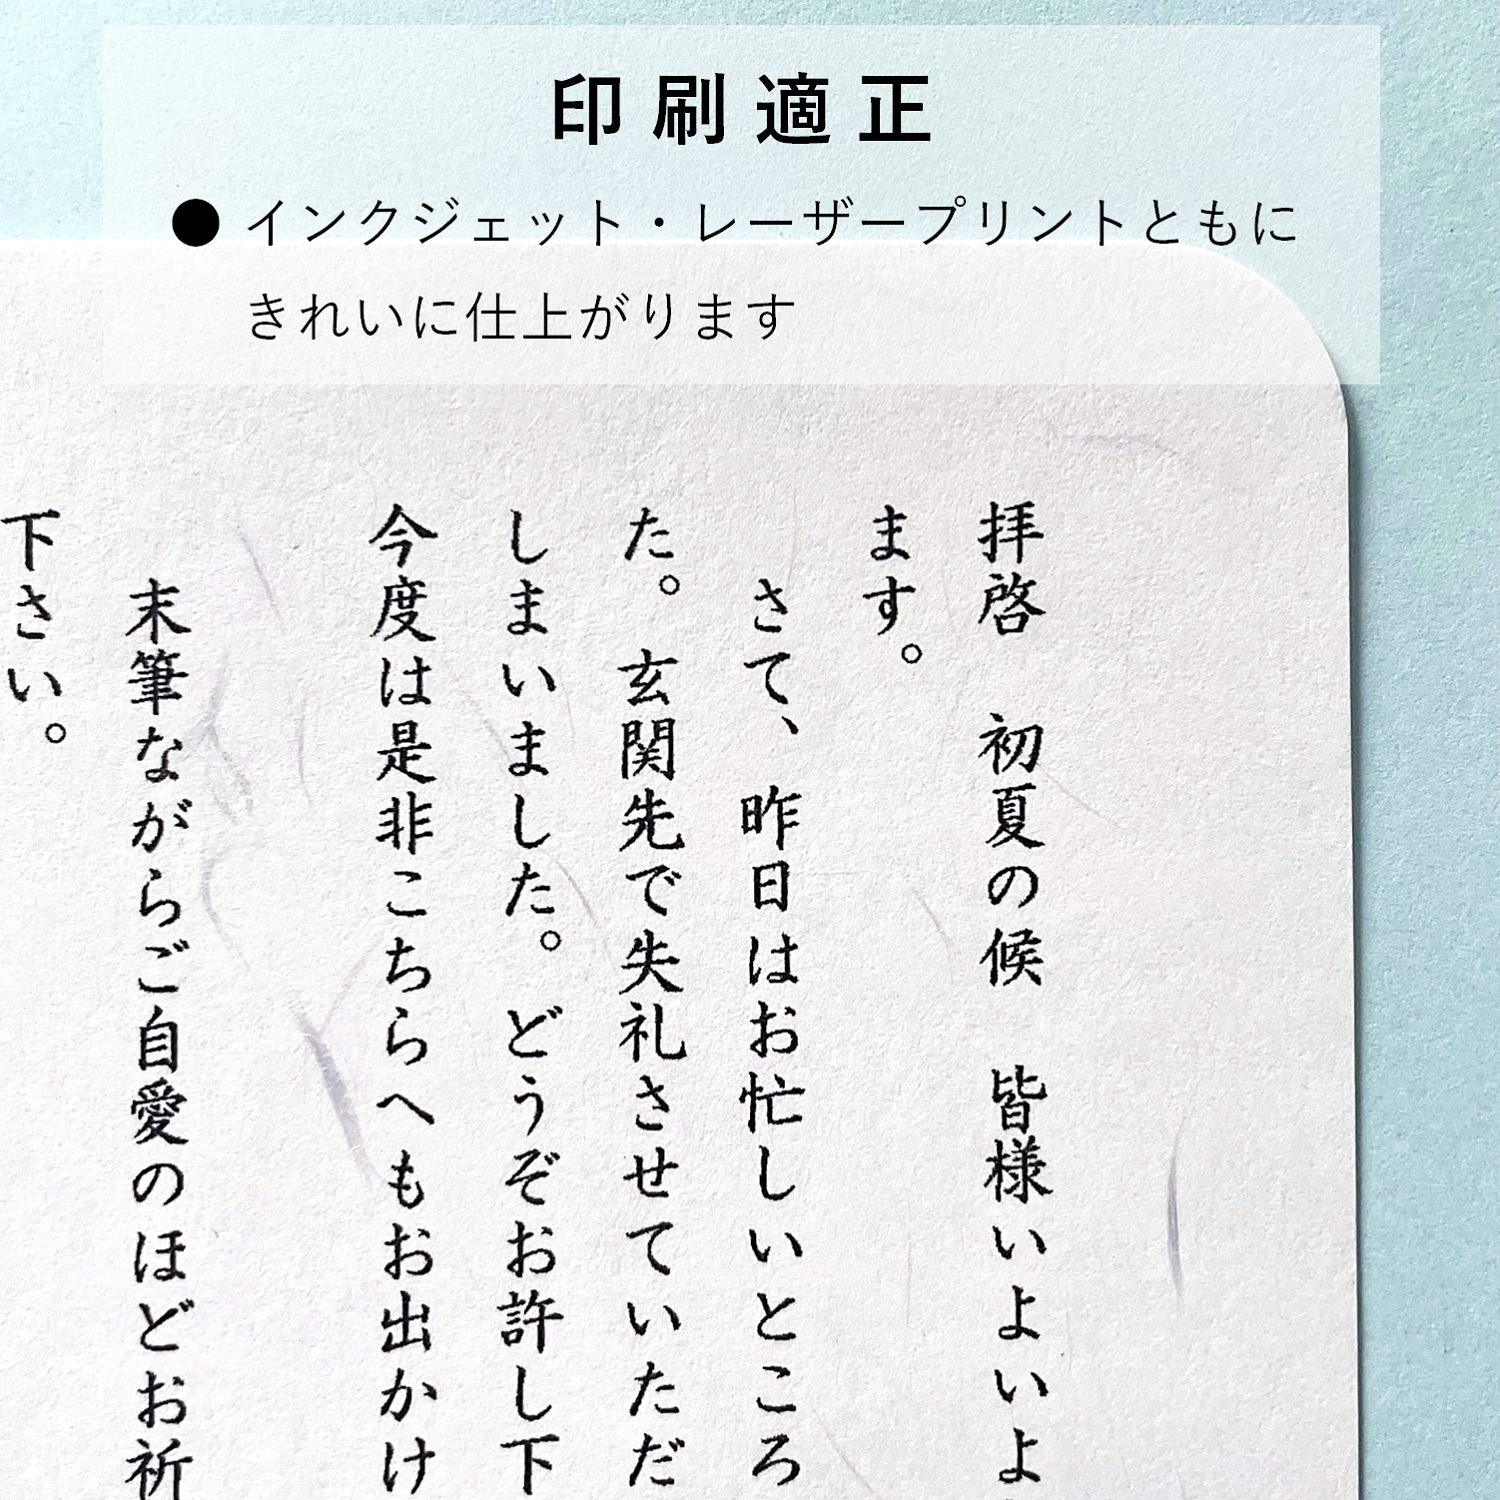 印刷適正
●インクジェット・レーザープリントともに
きれいに仕上がります
拝啓　初夏の候　皆様いよいよ
ます。
さて、昨日はお忙しいところ
た。玄関先で失礼させていただ
しまいました。どうぞお許し下
今度は是非こちらへもお出かけ
末筆ながらご自愛のほどお祈
下さい。